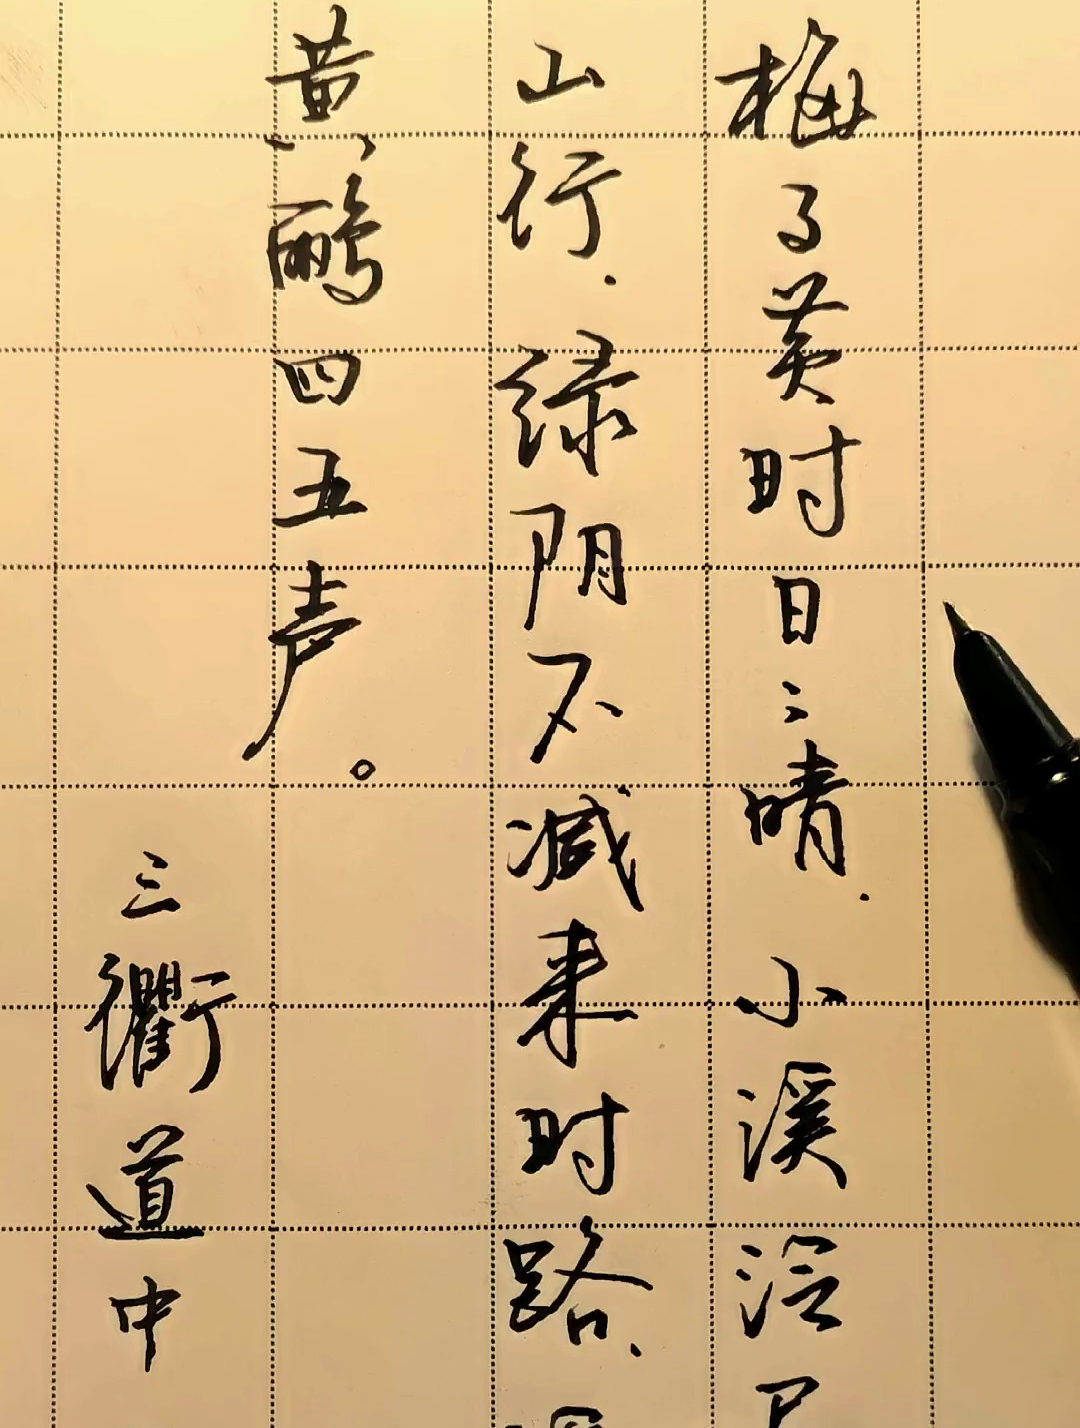 梅子黄时日々晴，小溪泛
山行，绿阴不减来时路，
黄鹂四五声。
三衢道中